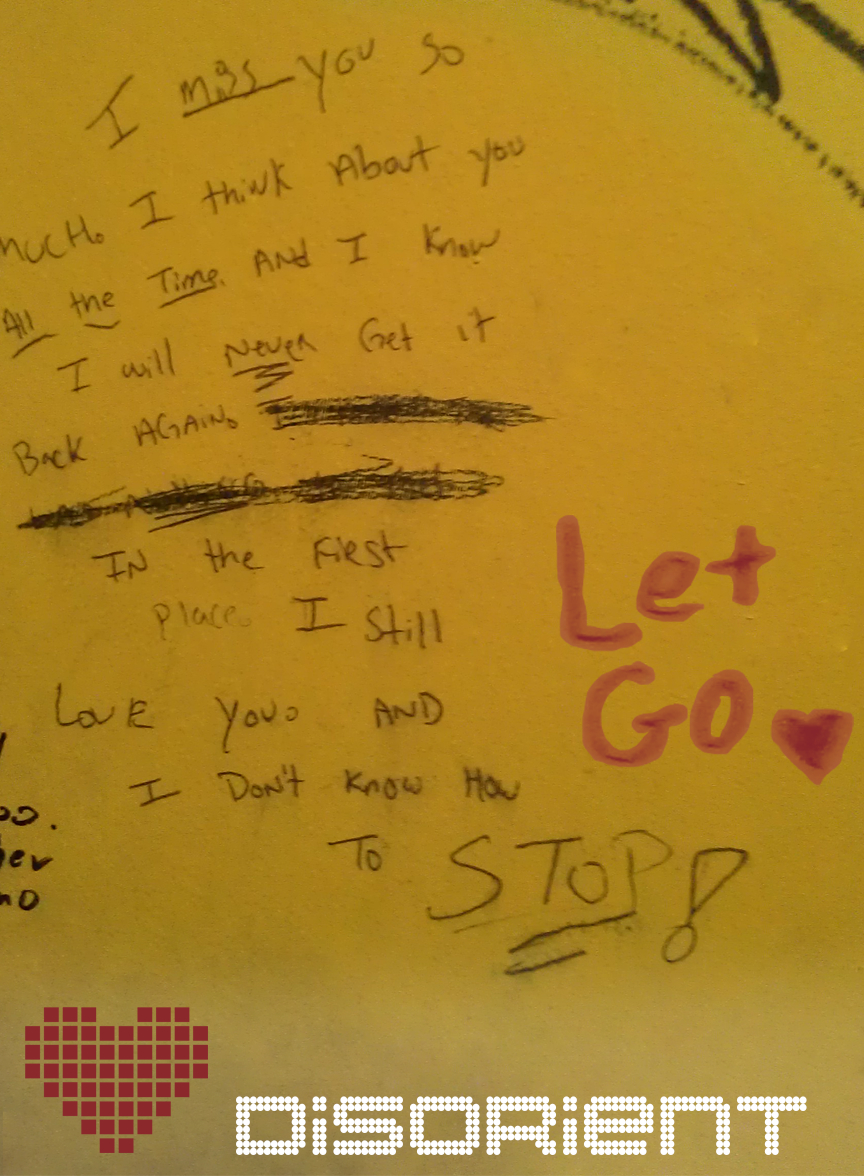 I miss you so
mucH. I think About you
All the Time. ANd I know
I will Never Get it
Back AGAiN.
IN the First
place. I Still
LovE you. AND
I Don't know How
To STOP!
Let
GO
DISORIENT